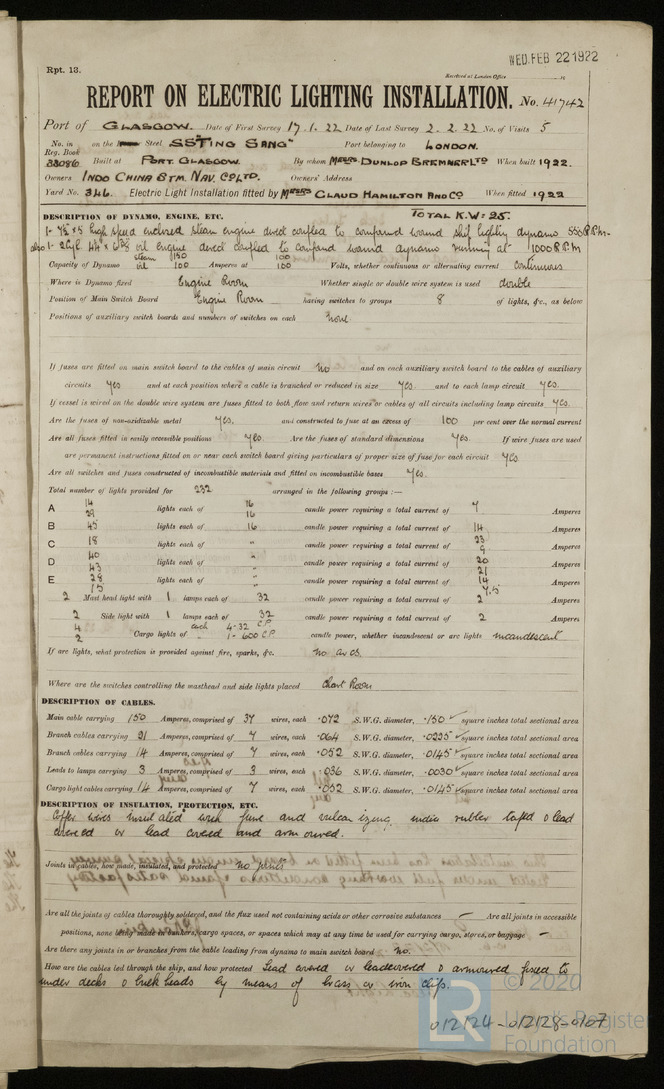 WED. FEB 22 1922
Rpt. 13.
Received at London Office
REPORT ON ELECTRIC LIGHTING INSTALLATION. No. 41742
Port of GLASGOW. Date of First Survey 17.1.22 Date of Last Survey 2.2.22 No. of Visits 5
No. in Reg. Book 33096 on the Steel SS "TING SANG" Port belonging to LONDON.
Built at PORT GLASGOW. By whom MESSRS DUNLOP BREMNER LTD When built 1922.
Owners INDO CHINA STM. NAV. CO LTD. Owners' Address
Yard No. 346. Electric Light Installation fitted by MESSRS CLAUD HAMILTON AND CO When fitted 1922
DESCRIPTION OF DYNAMO, ENGINE, ETC. TOTAL K.W = 25.
1- 7½ x 5 high speed enclosed steam engine direct coupled to compound wound ship lighting dynamo 550 R.P.M-
also 1- 2 Cyl oil engine direct coupled to compound wound dynamo running at 1000 R.P.M
Capacity of Dynamo steam 150 oil 100 Amperes at 100 100 Volts, whether continuous or alternating current continuous
Where is Dynamo fixed Engine Room Whether single or double wire system is used double
Position of Main Switch Board Engine Room having switches to groups 8 of lights, &c., as below
Positions of auxiliary switch boards and numbers of switches on each none
If fuses are fitted on main switch board to the cables of main circuit no and on each auxiliary switch board to the cables of auxiliary
circuits yes and at each position where a cable is branched or reduced in size yes. and to each lamp circuit yes.
If vessel is wired on the double wire system are fuses fitted to both flow and return wires or cables of all circuits including lamp circuits yes.
Are the fuses of non-oxidizable metal yes. and constructed to fuse at an excess of 100 per cent over the normal current
Are all fuses fitted in easily accessible positions yes. Are the fuses of standard dimensions yes. If wire fuses are used
are permanent instructions fitted on or near each switch board giving particulars of proper size of fuse for each circuit yes
Are all switches and fuses constructed of incombustible materials and fitted on incombustible bases yes.
Total number of lights provided for 232 arranged in the following groups :—
A 14 29 lights each of 16 16 candle power requiring a total current of 7 14 Amperes
B 45 lights each of 16 candle power requiring a total current of 23 Amperes
C 18 lights each of " candle power requiring a total current of 9 Amperes
D 40 43 lights each of " " candle power requiring a total current of 20 21 Amperes
E 28 15 lights each of " " candle power requiring a total current of 14 7.5 Amperes
2 Mast head light with 1 lamps each of 32 candle power requiring a total current of 2 Amperes
2 Side light with 1 lamps each of 32 candle power requiring a total current of 2 Amperes
4 2 Cargo lights of each 4-32 C.P. 1-600 C.P candle power, whether incandescent or arc lights incandescent
If arc lights, what protection is provided against fire, sparks, &c. no arcs
Where are the switches controlling the masthead and side lights placed Chart Room
DESCRIPTION OF CABLES.
Main cable carrying 150 Amperes, comprised of 37 wires, each .072 S.W.G. diameter, .150 square inches total sectional area
Branch cables carrying 21 Amperes, comprised of 7 wires, each .064 S.W.G. diameter, .0225 square inches total sectional area
Branch cables carrying 14 Amperes, comprised of 7 wires, each .052 S.W.G. diameter, .0145 square inches total sectional area
Leads to lamps carrying 3 Amperes, comprised of 3 wires, each .036 S.W.G. diameter, .0030 square inches total sectional area
Cargo light cables carrying 14 Amperes, comprised of 7 wires, each .052 S.W.G. diameter, .0145 square inches total sectional area
DESCRIPTION OF INSULATION, PROTECTION, ETC.
Copper wires insulated with pure and vulcanizing india rubber taped & lead
covered or lead covered and armoured.
Joints in cables, how made, insulated, and protected no joints
Are all the joints of cables thoroughly soldered, and the flux used not containing acids or other corrosive substances — Are all joints in accessible
positions, none being made in bunkers, cargo spaces, or spaces which may at any time be used for carrying cargo, stores, or baggage —
Are there any joints in or branches from the cable leading from dynamo to main switch board no.
How are the cables led through the ship, and how protected Lead covered or leadcovered & armoured fixed to
under decks & bulk heads by means of brass or iron clips.
© 2020
LR
Lloyd's Register
Foundation
012124-012128-0107